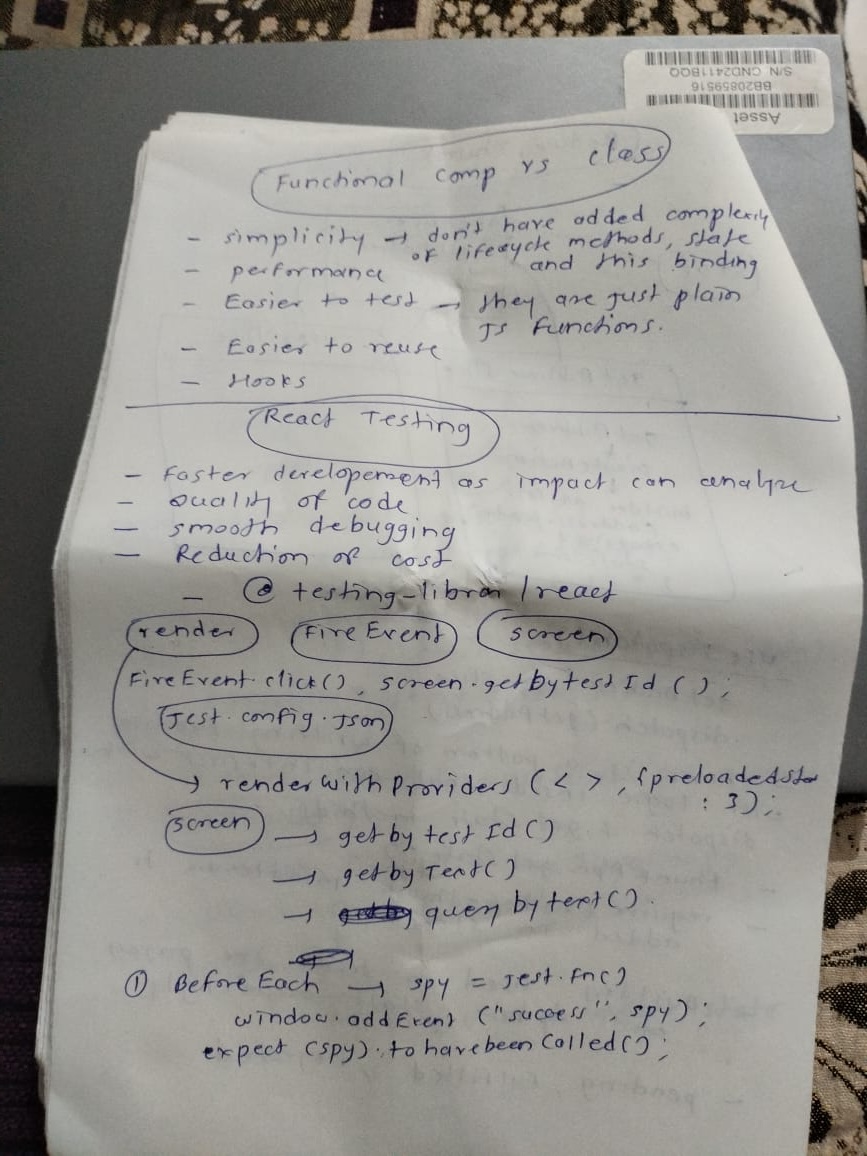 Asset
BB20859516
S/N. CND2411BQQ
Functional comp vs class
- simplicity → don't have added complexity
of lifecycle methods, state
- performance and this binding
- Easier to test → they are just plain
JS functions.
- Easier to reuse
- Hooks
React Testing
- Faster developement as impact can analyze
- Quality of code
- smooth debugging
- Reduction of cost
- @ testing-library /react
render FireEvent screen
FireEvent.click(), screen.getbytestId();
Jest.config.json
→ renderwithProviders (< >, {preloadedstate
: 3);
screen → getbytestId()
→ getbyText()
→ querybytext().
① BeforeEach → spy = Jest.fn()
window.addEvent ("success", spy);
expect (spy).tohavebeenCalled();